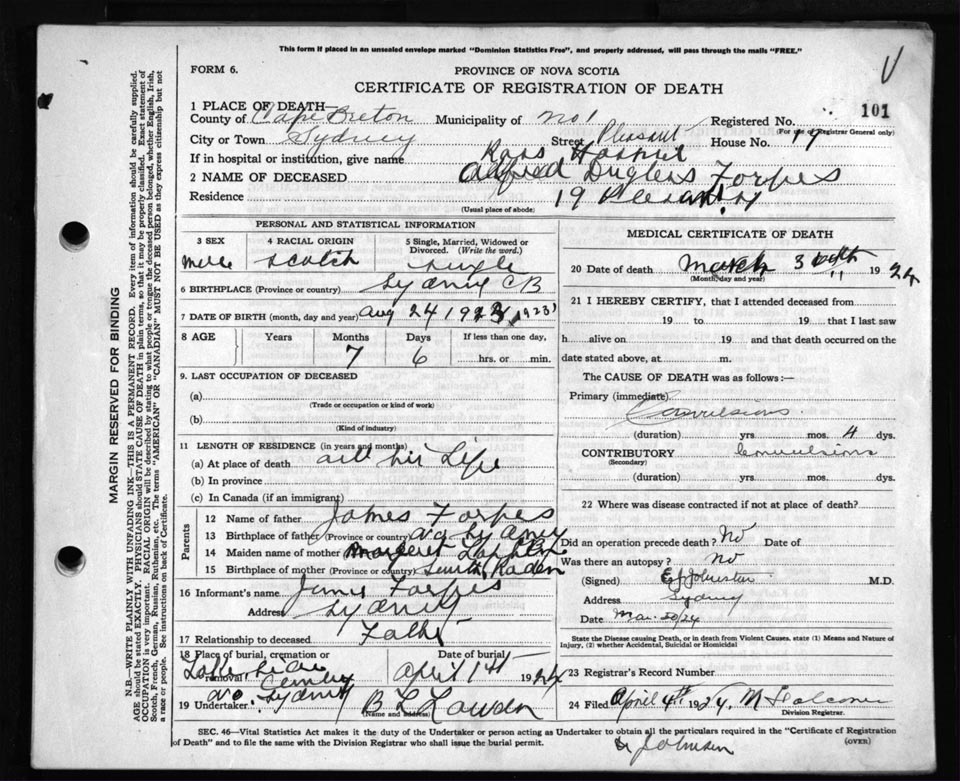 This form if placed in an unsealed envelope marked "Dominion Statistics Free", and properly addressed, will pass through the mails "FREE."
V
FORM 6.
PROVINCE OF NOVA SCOTIA
CERTIFICATE OF REGISTRATION OF DEATH
101
1 PLACE OF DEATH—
County of Cape Breton Municipality of No 1 Registered No.
(For use of Registrar General only)
City or Town Sydney Street Pleasant House No. 19
If in hospital or institution, give name Ross Hospit
2 NAME OF DECEASED Alfred Dugless Forpes
Residence 19 Pleasant St
(Usual place of abode)
PERSONAL AND STATISTICAL INFORMATION
3 SEX 4 RACIAL ORIGIN 5 Single, Married, Widowed or Divorced. (Write the word.)
Mele Scotch Single
6 BIRTHPLACE (Province or country) Sydney CB
7 DATE OF BIRTH (month, day and year) Aug 24 1923 1923
8 AGE Years Months Days If less than one day,
7 6 hrs. or min.
9. LAST OCCUPATION OF DECEASED
(a)
(Trade or occupation or kind of work)
(b)
(Kind of industry)
11 LENGTH OF RESIDENCE (in years and months)
(a) At place of death all his Life
(b) In province
(c) In Canada (if an immigrant)
Parents
12 Name of father James Forpes
13 Birthplace of father (Province or country)
14 Maiden name of mother Margeret
15 Birthplace of mother (Province or country)
16 Informant's name James Forpes
Address Sydney
17 Relationship to deceased Father
18 Place of burial, cremation or removal Date of burial—
April 1st 1924
No. Sydney
19 Undertaker B L Lowden
(Name and address)
MEDICAL CERTIFICATE OF DEATH
20 Date of death March 30th 1924
(Month, day and year)
21 I HEREBY CERTIFY, that I attended deceased from
19 to 19 that I last saw
h alive on 19 and that death occurred on the
date stated above, at m.
The CAUSE OF DEATH was as follows:—
Primary (immediate)
Convulsions
(duration) yrs. mos. 4 dys.
CONTRIBUTORY Convulsions
(Secondary)
(duration) yrs. mos. dys.
22 Where was disease contracted if not at place of death?
Did an operation precede death? No Date of
Was there an autopsy? no
(Signed) E Johnston M.D.
Address Sydney
Date Mar. 30/24
State the Disease causing Death, or in death from Violent Causes, state (1) Means and Nature of Injury, (2) whether Accidental, Suicidal or Homicidal
23 Registrar's Record Number
24 Filed April 4th 1924. M Falconer
Division Registrar.
SEC. 46—Vital Statistics Act makes it the duty of the Undertaker or person acting as Undertaker to obtain all the particulars required in the "Certificate of Registration
of Death" and to file the same with the Division Registrar who shall issue the burial permit.
(OVER)
Dr Johnson
MARGIN RESERVED FOR BINDING
N.B.—WRITE PLAINLY WITH UNFADING INK—THIS IS A PERMANENT RECORD. Every item of information should be carefully supplied.
AGE should be stated EXACTLY. PHYSICIANS should STATE CAUSE OF DEATH in plain terms, so that it may be properly classified. Exact statement of
OCCUPATION is very important. RACIAL ORIGIN will be described by stating to what people or tongue the deceased person belonged, whether English, Irish,
Scotch, French, German, Russian, Ruthenian, etc. The terms "AMERICAN" OR "CANADIAN" MUST NOT BE USED as they express citizenship but not
a race or people. See instructions on back of Certificate.